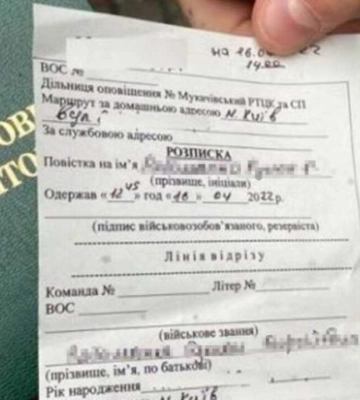 на 16.0 22
14.00
ВОС №
Дільниця оповіщення № Мукачівський РТЦК та СП
Маршрут за домашньою адресою м. Київ
вул.
За службовою адресою
РОЗПИСКА
Повістка на ім'я
(прізвище, ініціали)
Одержав «12 45» год «16» 04 2022р.
(підпис військовозобов'язаного, резервіста)
Лінія відрізу
Команда № Літер №
ВОС
(військове звання)
(прізвище, ім'я, по батькові)
Рік народження
м. Київ